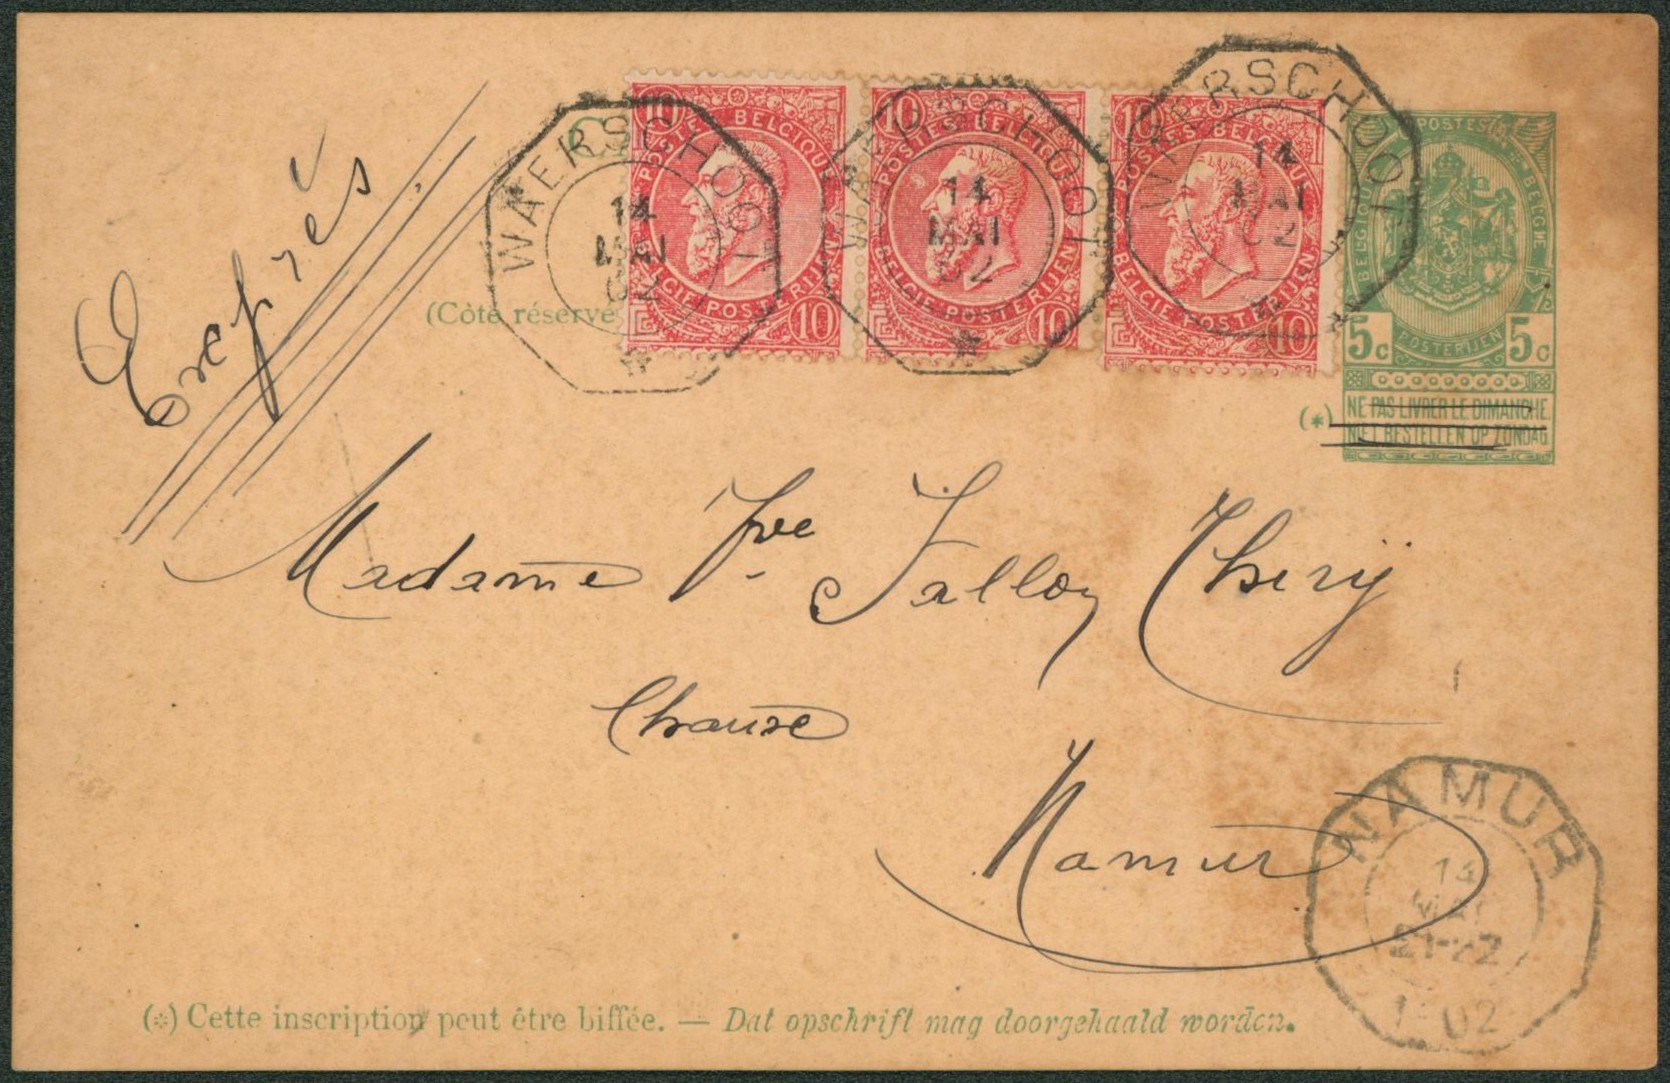 Exprès
WAERSCHOOT
14
MAI
02
WAERSCHOOT
14
MAI
02
WAERSCHOOT
14
MAI
02
10
POSTES BELGIQUE
BELGIE POSTERIJEN
10
10
POSTES BELGIQUE
BELGIE POSTERIJEN
10
10
POSTES BELGIQUE
BELGIE POSTERIJEN
10
POSTES
BELGIQUE BELGIE
POSTERIJEN
5c 5c
(*) NE PAS LIVRER LE DIMANCHE.
NIET BESTELLEN OP ZONDAG
(Côté réservé
Madame Vve Falloy Thery
Namur
NAMUR
14
MAI
21-22
1902
(*) Cette inscription peut être biffée. — Dat opschrift mag doorgehaald worden.